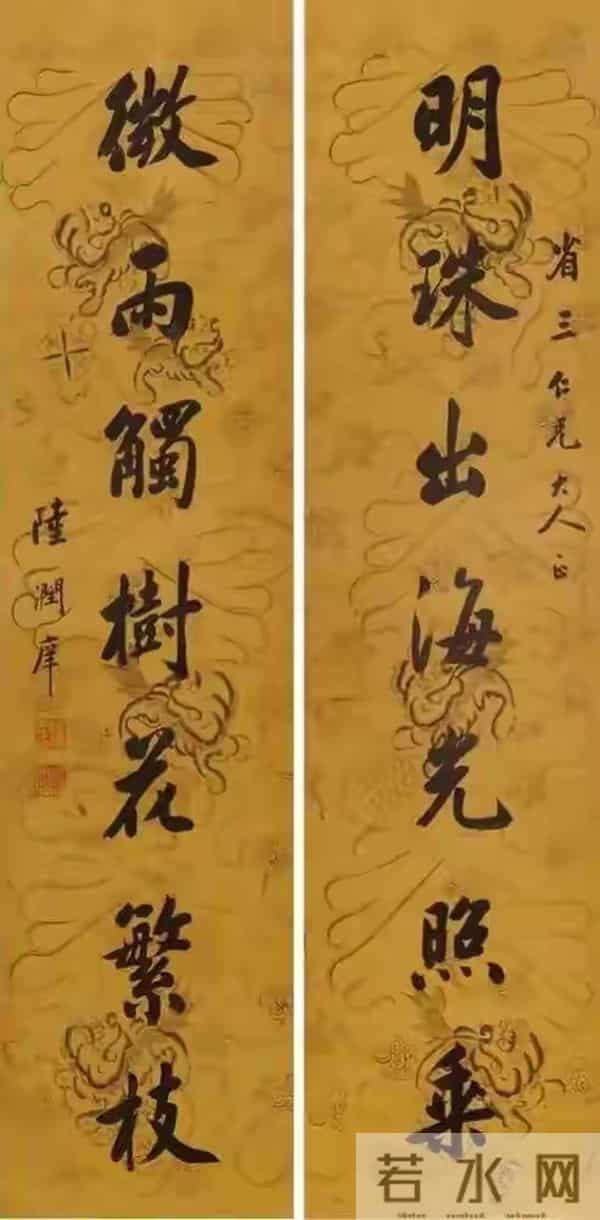 省三仁兄大人正
明珠出海光照乘
微雨觸樹花繁枝
陸潤庠
若水网